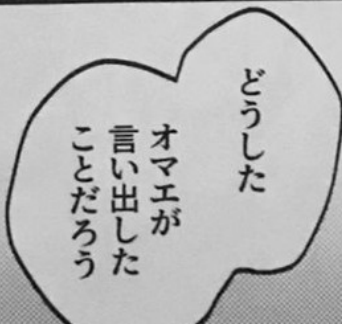 どうした
オマエが
言い出した
ことだろう